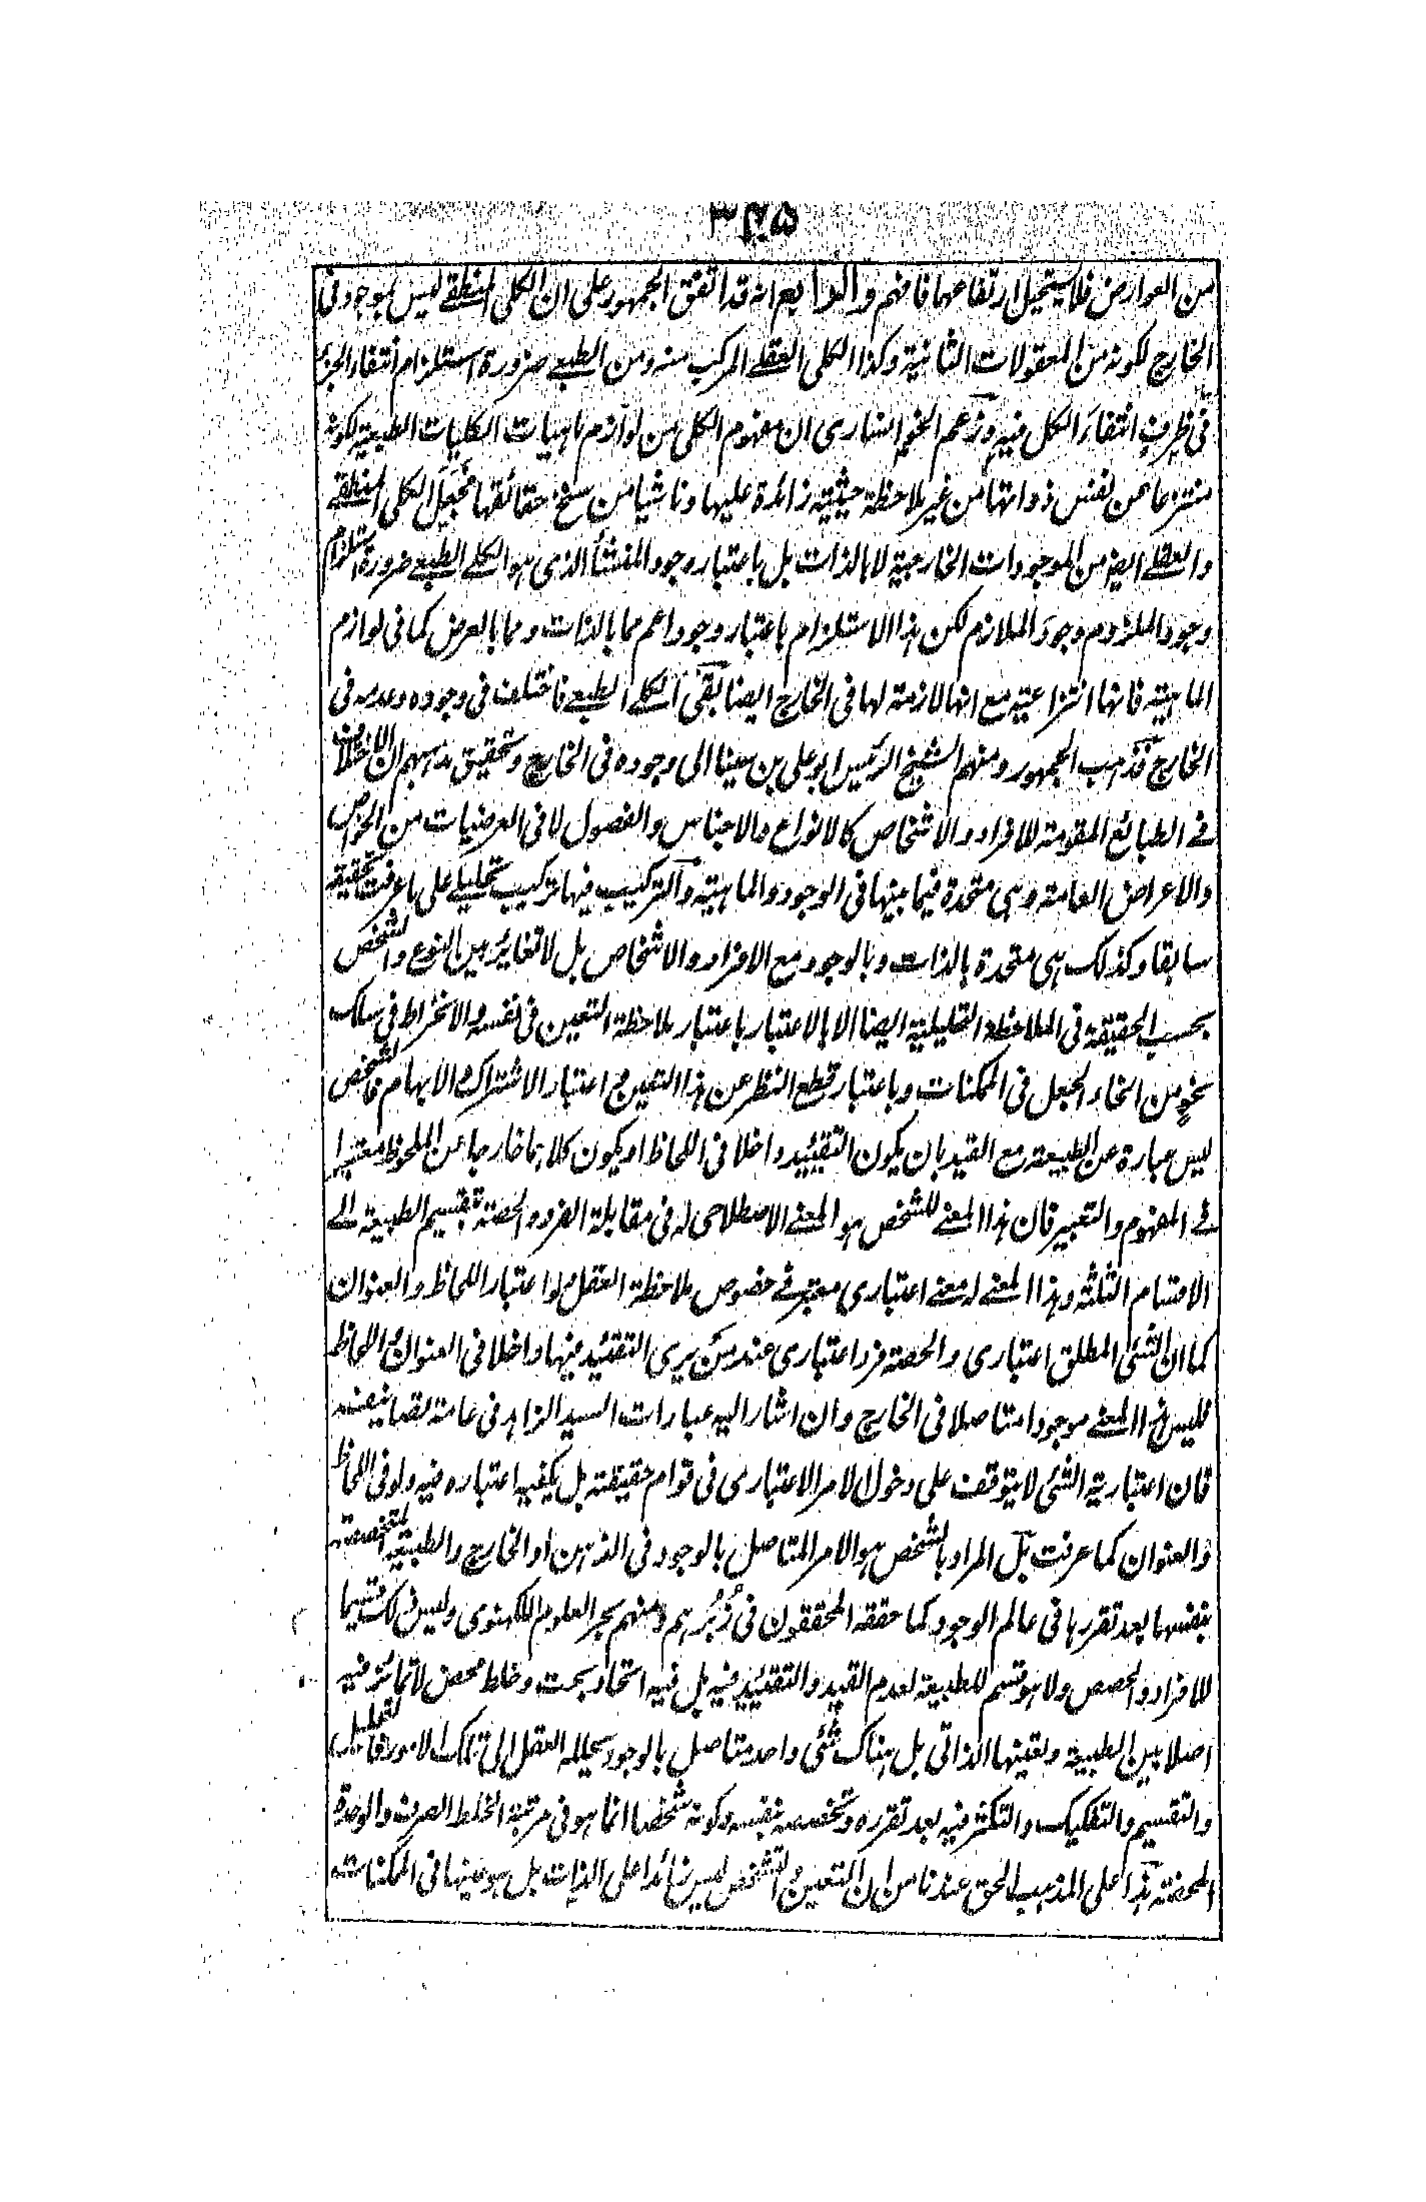 ۳۴۵
من العوارض فلا يستحيل ارتفاعها فافهم والرابع انه قد اتفق الجمهور على ان الكلى المنطقے ليس بموجود فى
الخارج لكونه من المعقولات الثانية وكذا الكلى العقلے المركب منه ومن الطبعے ضرورة استلزام انتفاء الجزء
فى ظرف انتفاء الكل فيه وزعم الخوانسارى ان مفهوم الكلى من لوازم ماهيات الكليات الطبعية لكونه
منتزعا عن نفس ذواتها من غير ملاحظة حيثية زائدة عليها وناشيا من سنخ حقائقها فجعل الكلى المنطقے
والعقلے ايضا من الموجودات الخارجية لا بالذات بل باعتبار وجود المنشأ الذى هو الكلے الطبعے ضرورة استلزام
وجود الملزوم وجود الملازم لكن هذا الاستلزام باعتبار وجود اعم مما بالذات ومما بالعرض كما فى لوازم
الماهية فانها انتزاعية مع انها لازمة لها فى الخارج ايضا بقى الكلے الطبعے فاختلف فى وجوده وعدمه فى
الخارج فذهب الجمهور ومنهم الشيخ الرئيس ابو على بن سينا الى وجوده فى الخارج وتحقيق مذهبهم ان الاختلاف
فے الطبائع المقومة للافراد والاشخاص كالانواع والاجناس والفصول لا فى العرضيات من الخواص
والاعراض العامة وهى متحدة فيما بينها فى الوجود والماهية والتركيب فيها تركيب تحليلے على ما عرفت تحقيقه
سابقا وكذلك هى متحدة بالذات وبالوجود مع الافراد والاشخاص بل لا تغاير بين النوع والشخص
بحسب الحقيقة فى الملاحظة التحليلية ايضا الا بالاعتبار باعتبار ملاحظة التعين فى نفسه والانخراط فى سلك
نحو من انحاء الجعل فى الممكنات وباعتبار قطع النظر عن هذا التعين مع اعتبار الاشتراك والابهام فالشخص
ليس عبارة عن الطبيعة مع القيد بان يكون التقييد داخلا فى اللحاظ او يكون كلاهما خارجا عن الملحوظ معتبرا
فے المفهوم والتعبير فان هذا المعنے للشخص هو المعنے الاصطلاحى له فى مقابلة الفرد والحصة بتقسيم الطبيعة الے
الاقسام الثلثة وهذا المعنے له معنے اعتبارى معتبر فے خصوص ملاحظة العقل ولو اعتبار اللحاظ والعنوان
كما ان الشئ المطلق اعتبارى والحصة فرد اعتبارى عند من يرى التقئيد فيها داخلا فى العنوان واللحاظ
فليس هذا المعنے موجودا متاصلا فى الخارج وان اشار اليه عبارات السيد الزاهد فى عامة تصانيفه
فان اعتبارية الشئ لا يتوقف على دخول الامر الاعتبارى فى قوام حقيقته بل يكفيه اعتباره فيه ولو فى اللحاظ
والعنوان كما عرفت بل المراد بالشخص هو الامر المتاصل بالوجود فى الذهن او الخارج والطبيعة المتخصصة
بنفسها بعد تقررها فى عالم الوجود كما حققه المحققون فى زبرهم ومنهم بحر العلوم اللكهنوى وليس ذلك قسيما
للافراد والحصص ولا هو قسم للطبيعة لعدم القيد والتقئيد فيه بل فيه اتحاد بحت وخلط محض لا تمائز فيه
اصلا بين الطبيعة وتعينها الذاتى بل هناك شئ واحد متاصل بالوجود يحلله العقل الى تلك الامور فالتحليل
والتقسيم والتفكيك والتكثر فيه بعد تقرره وتخصصه بنفسه وكونه شخصا انما هو فى مرتبة الخلط الصرف والوحدة
المحضة هذا على المذهب الحق عندنا من ان التعين والتشخص ليس زائدا على الذات بل هو عينها فى الممكنات